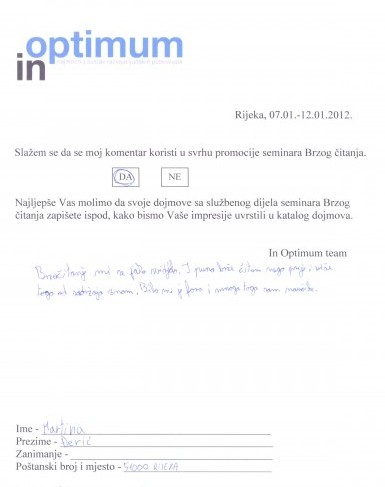 in optimum
Rijeka, 07.01.-12.01.2012.
Slažem se da se moj komentar koristi u svrhu promocije seminara Brzog čitanja.
DA NE
Najljepše Vas molimo da svoje dojmove sa službenog dijela seminara Brzog
čitanja zapišete ispod, kako bismo Vaše impresije uvrstili u katalog dojmova.
In Optimum team
Brzočitanje mi se jako svidjelo. I puno brže čitam nego prije i više
toga od sadržaja znam. Bilo mi je fora i mnogo toga sam naučila.
Ime - Martina
Prezime - Đerić
Zanimanje -
Poštanski broj i mjesto - 51000 RIJEKA